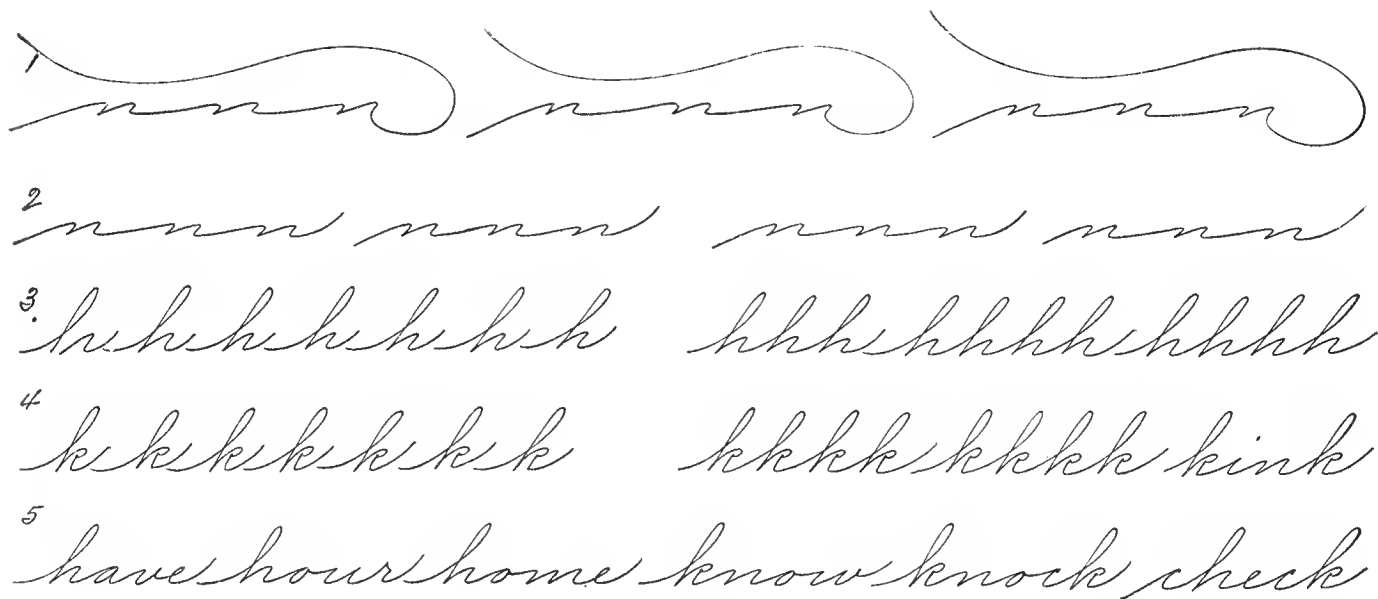 1 nnn nnn nnn
2 nnn nnn nnn nnn
3. h h h h h h h hhh hhhh hhhh
4 k k k k k k k kkkk kkkk kink
5 have hour home know knock check